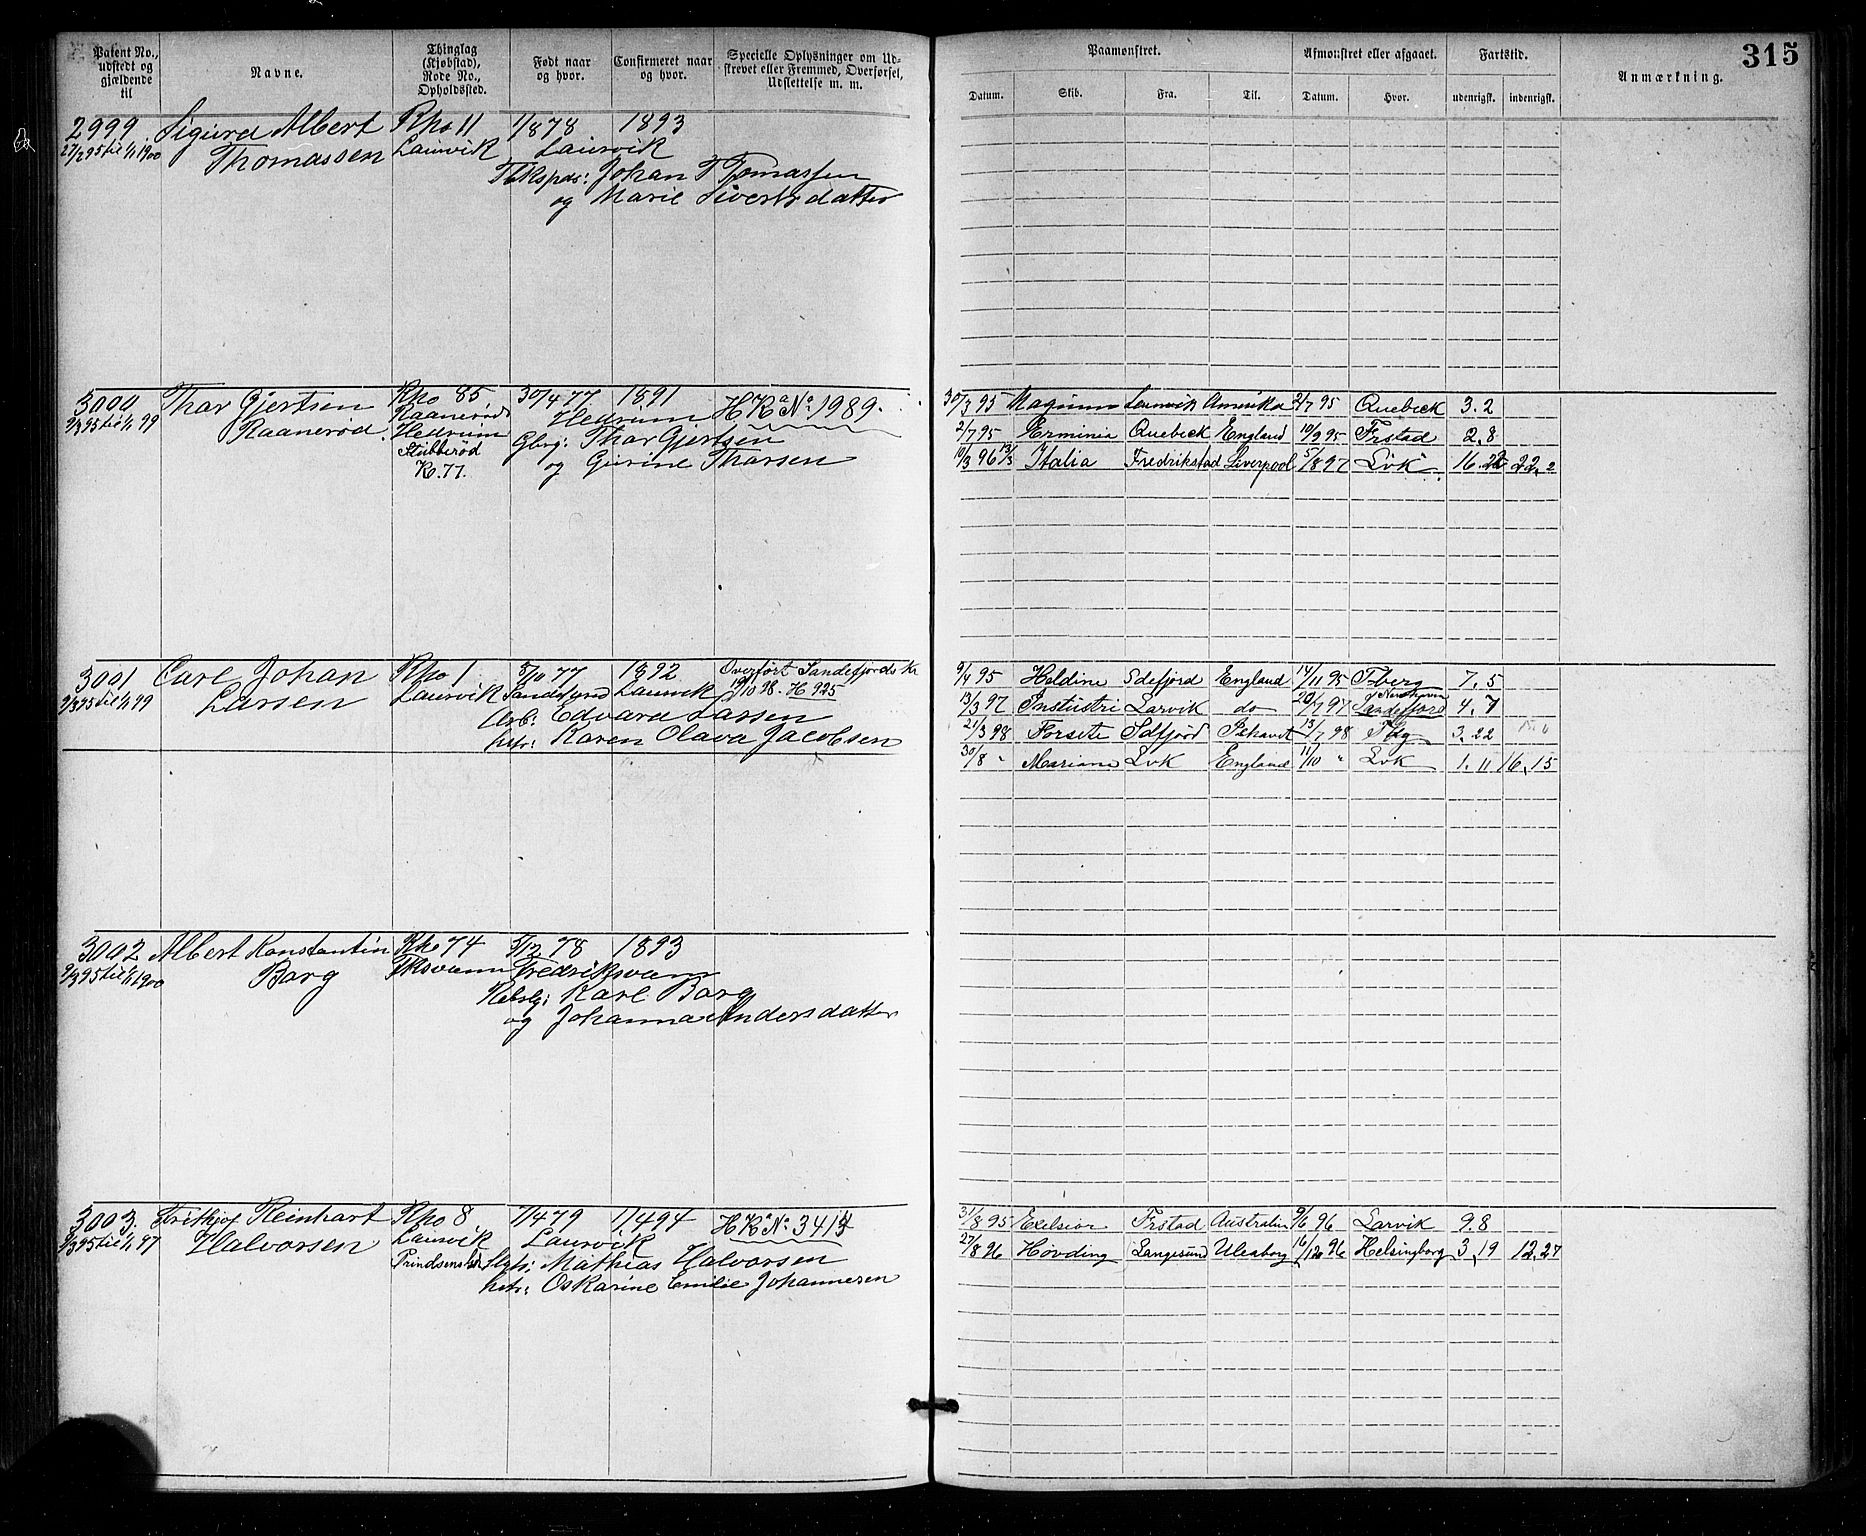 315
Patent No., udstedt og gjældende til
Navne.
Thinglag (Kjøbstad), Rode No., Opholdssted.
Født naar og hvor.
Confirmeret naar og hvor.
Specielle Oplysninger om Udskrevet eller Fremmed, Overførsel, Udslettelse m. m.
Paamønstret.
Afmønstret eller afgaaet.
Fartstid.
Anmærkning.
Datum. Skib. Fra. Til. Datum. Hvor. udenrigsk. indenrigsk.
2999 Sigurd Albert Rho 11 1/8 78 1893
27/2 95 til 1/1 1900 Thomassen Laurvik Laurvik
Johan Thomassen
og Marie Sivertsdatter
3000 Thor Gjertsen Rho 85 30/4 77 1891 HKa No 1989.
9/3 95 til 1/1 99 Raanerød. Raanerød Hedrum
Hedrum Gbrg: Thor Gjertsen
Stubberød og Gurine Thorsen
Ro. 77.
30/3 95 Magnum Laurvik Amerika 2/7 95 Quebeck 3. 2
2/7 95 Erminia Quebeck England 10/9 95 Frstad 2. 8
10/3 96 13/3 Italia Fredrikstad Liverpool 5/8 97 Lvk 16. 22, 2
3001 Carl Johan Rho 1 8/10 77 1892 Overført Sandefjords Kr
9/3 95 til 1/1 99 Larsen Laurvik Laurvik 19/10 98 - H 925
Arb: Edvard Larsen
hstr: Karen Olava Jacobsen
9/4 95 Haldine Sdefjord England 14/11 95 Fberg 7. 5
13/3 97 Industri Larvik do 20/7 97 Sandefjord 4. 7
21/3 98 Forsete Sdfjörd 13/7 98 3. 22
30/8 " Mariane Lvk England 1/10 " Lvk 1. 11 16, 15
3002 Albert Konstantin Rho 74 5/12 78 1893
9/3 95 til 1/1 1900 Borg Fksværn Fredriksværn
Karl Borg
og Johanna Andersdatter
3003. Frithjof Reinhart Rho 8 1/4 79 1/4 94 HKa No. 3414
9/3 95 til 1/1 97 Halvorsen Laurvik Laurvik
Mathias Halvorsen
hstr: Oskarine Emilie Johannesen
31/8 95 Exelsior Frstad Australien 9/6 96 Larvik 9. 8
27/8 96 Høvding Langesund Uleaborg 16/12 96 Helsingborg 3, 19 12, 27